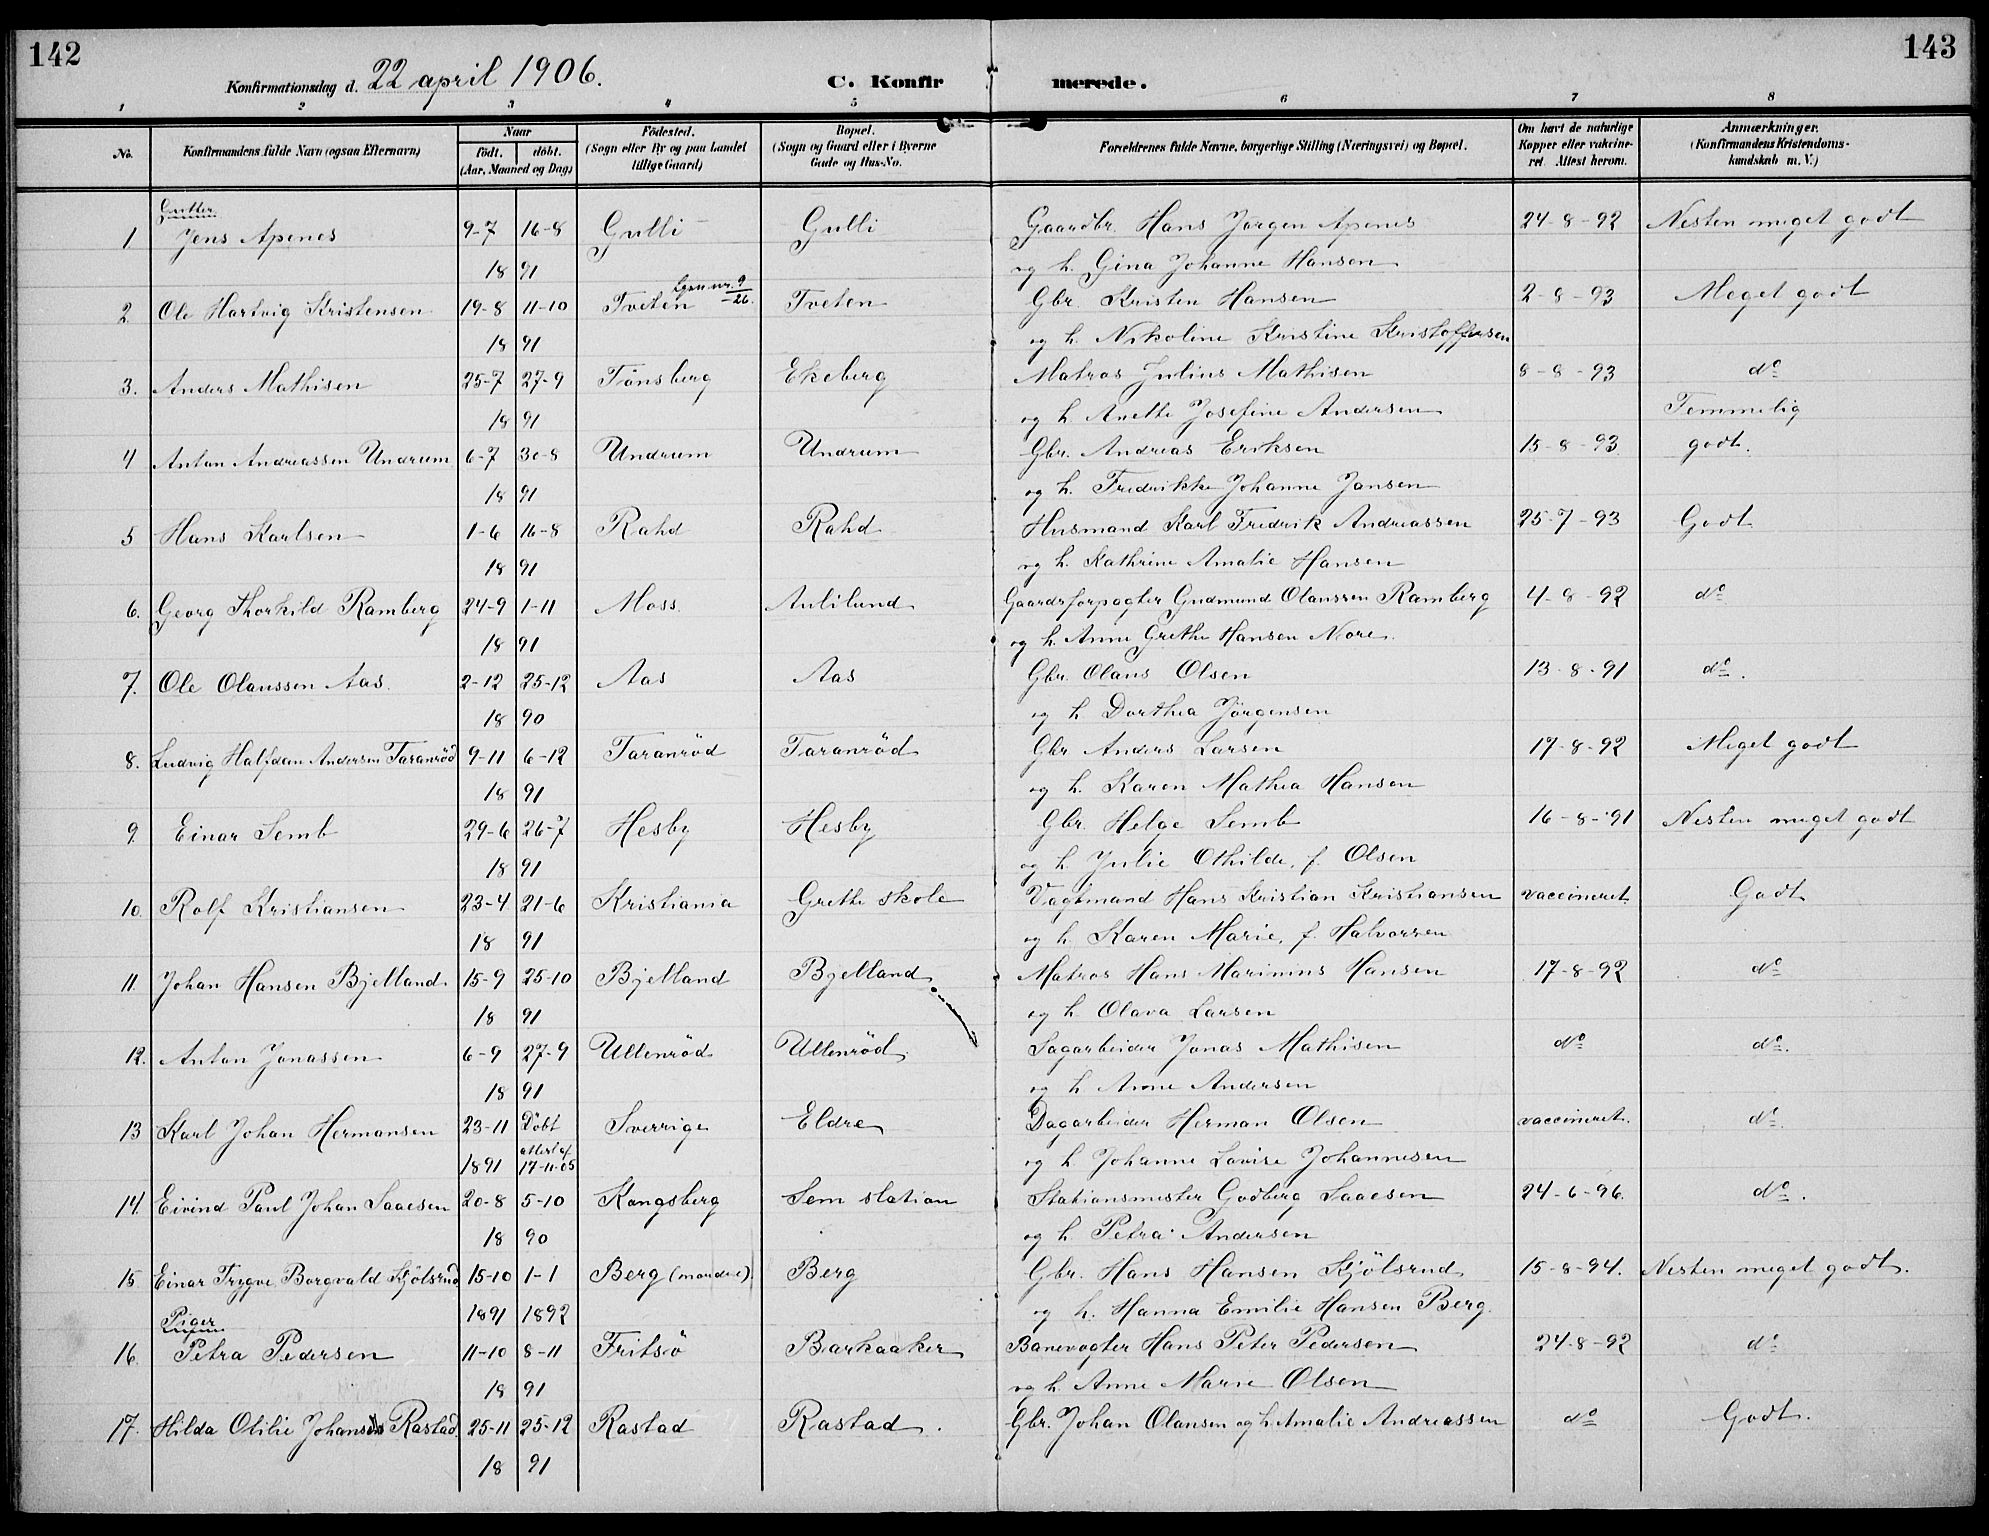 142
143
Konfirmationsdag d. 22 april 1906.
C. Konfirmerede.
1 2 3 4 5 6 7 8
No.
Konfirmandens fulde Navn (ogsaa Efternavn)
Naar
født. døbt.
(Aar, Maaned og Dag)
Fødested.
(Sogn eller By og paa Landet
tillige Gaard)
Bopæl.
(Sogn og Gaard eller i Byerne
Gade og Hus-No.
Forældrenes fulde Navne, borgerlige Stilling (Næringsvei) og Bopæl.
Om havt de naturlige
Kopper eller vakcine-
ret. Attest herom.
Anmærkninger.
(Konfirmandens Kristendoms-
kundskab m. V.)
Gutter.
1 Jens Apenes 9-7 16-8 Gulli Gulli Gaardbr. Hans Jørgen Apenes 24-8-92 Nesten meget godt
18 91 og h. Gina Johanne Hansen
2. Ole Hartvig Kristensen 19-8 11-10 Tveten Tveten Gbr. Kristen Hansen 2-8-93 Meget godt
18 91 og h. Nikoline Kristine Kristoffersen
3. Anders Mathisen 25-7 27-9 Tönsberg Ekeberg Matros Julius Mathisen 8-8-93 do
18 91 og h Anette Josefine Andersen Temmelig
4 Anton Andreassen Undrum 6-7 30-8 Undrum Undrum Gbr. Andreas Eriksen 15-8-93 godt.
18 91 og h. Fredrikke Johanne Jansen
5 Hans Karlsen 1-6 16-8 Rahd Rahd Husmand Karl Fredrik Andreassen 25-7-93 Godt
18 91 og h. Kathrine Amalie Hansen
6. Georg Thorkild Ramberg 24-9 1-11 Moss Aulilund Gaardsforpagter Gudmund Olaussen Ramberg 4-8-92 do
18 91 og h. Anne Grethe Hansen Nore.
7. Ole Olaussen Aas. 2-12 25-12 Aas Aas Gbr. Olaus Olsen 13-8-91 do.
18 90 og h Dorthea Jørgensen
8. Ludvig Halfdan Andersen Taranröd 9-11 6-12 Taranröd Taranröd Gbr Anders Larsen 17-8-92 Meget godt
18 91 og h. Karen Mathea Hansen
9. Einar Semb 29-6 26-7 Hesby Hesby Gbr. Helge Semb 16-8-91 Nesten meget godt
18 91 og h. Julie Othilde, f. Olsen
10. Rolf Kristiansen 23-4 21-6 Kristiania Grette skole Vagtmand Hans Kristian Kristiansen vaccineret. Godt
18 91 og h. Karen Marie, f. Halvorsen
11. Johan Hansen Bjelland. 15-9 25-10 Bjelland Bjelland Matros Hans Marinius Hansen 17-8-92 do
18 91 og h. Olava Larsen
12. Anton Jonassen 6-9 27-9 Ullenröd Ullenröd. Sagarbeider Jonas Mathisen do do.
18 91 og h Anne Andersen
13 Karl Johan Hermansen 23-11 Döbt Sverrige Eldre Dagarbeider Herman Olsen vaccineret. do.
1891 attest af 17-11-05 og h. Johanne Lovise Johannesen
14. Eivind Paul Johan Saaesen 20-8 5-10 Kongsberg Sem station Stationsmester Godberg Saaesen 24-6-96. do.
18 90 og h. Petra Andersen
15 Einar Trygve Borgvald Kjölsrud 15-10 1-1 Berg Berg Gbr. Hans Hansen Kjölsrud 15-8-94. Nesten meget godt.
1891 1892 og h. Hanna Emilie Hansen Berg.
Piger
16. Petra Pedersen 11-10 8-11 Fritsö Barkaaker Banevogter Hans Peter Pedersen 24-8-92 do
18 91 og h. Anne Marie Olsen
17. Hilda Otilie Johansen Rastad 25-11 25-12 Rastad Rastad. Gbr. Johan Olausen og h. Amalie Andreassen do Godt.
18 91